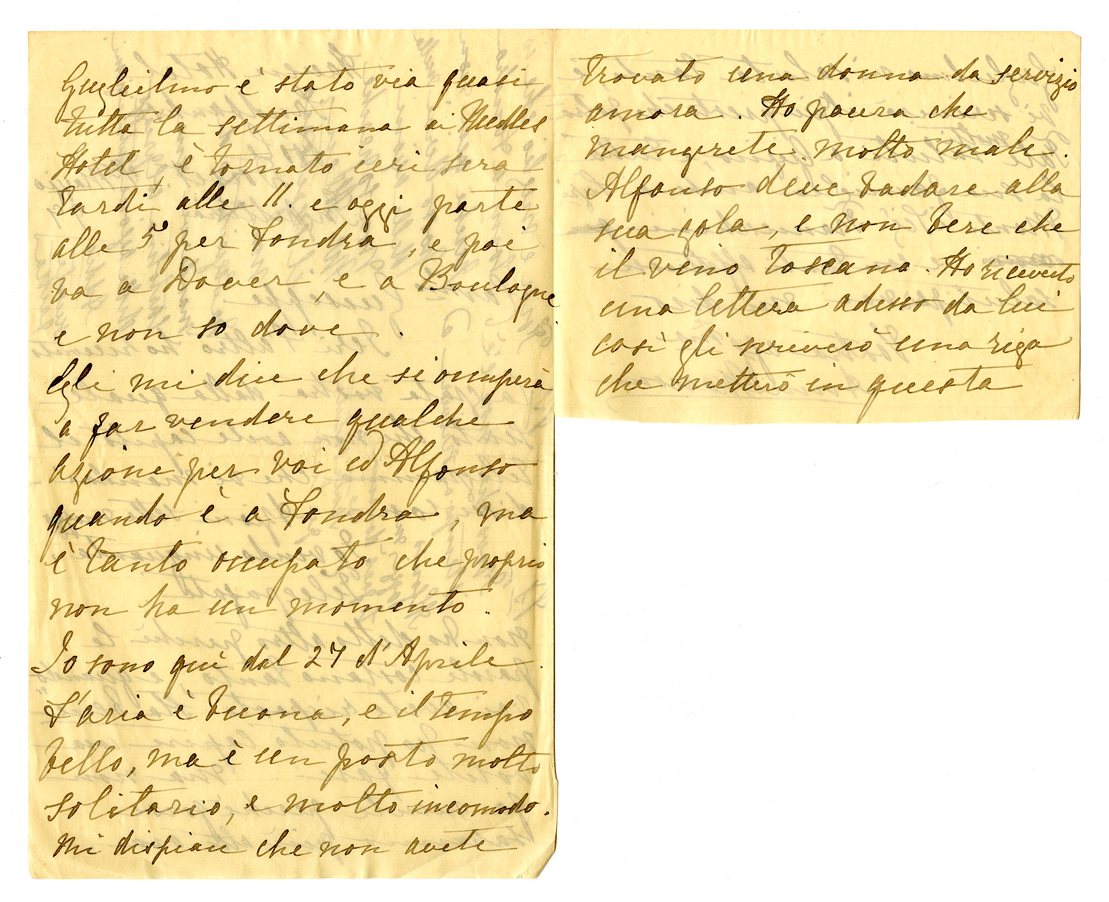 Guglielmo è stato via quasi
tutta la settimana ai Needles
Hotel, è tornato ieri sera
tardi alle 11. e oggi parte
alle 5 per Londra, e poi
va a Dover, e a Boulogne
e non so dove.
Egli mi dice che si occuperà
a far vendere qualche
azione per voi ed Alfonso
quando è a Londra, ma
è tanto occupato che proprio
non ha un momento.
Io sono quì dal 27 d'Aprile
L'aria è buona, e il tempo
bello, ma è un posto molto
solitario, e molto incomodo.
Mi dispiace che non avete
trovato una donna da servizio
ancora. Ho paura che
mangerete molto male.
Alfonso deve badare alla
sua gola, e non bere che
il vino Toscano. Ho ricevuto
una lettera adesso da lui
così gli scriverò una riga
che metterò in questa